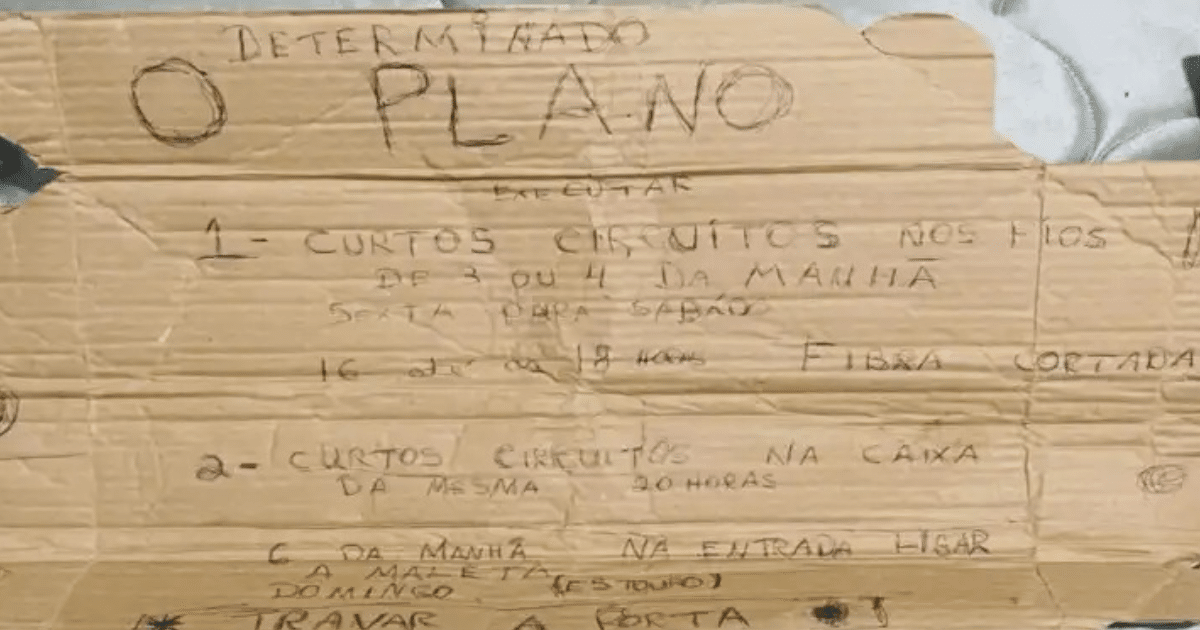 DETERMINADO
O PLANO
EXECUTAR
1- CURTOS CIRCUITOS NOS FIOS
DE 3 OU 4 DA MANHÃ
SEXTA PARA SABÁDO
16 até as 18 HORAS FIBRA CORTADA
2- CURTOS CIRCUITOS NA CAIXA
DA MESMA 20 HORAS
6 DA MANHÃ NA ENTRADA LIGAR
A MALETA
DOMINGO (ESTOURO)
* TRAVAR A PORTA